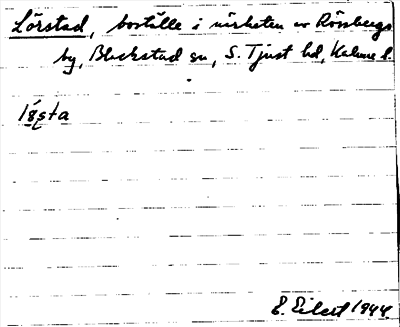 Lörstad, boställe i närheten av Rössbergs
by, Blackstad sn, S. Tjust hd, Kalmar l.
E. Eilert 1944